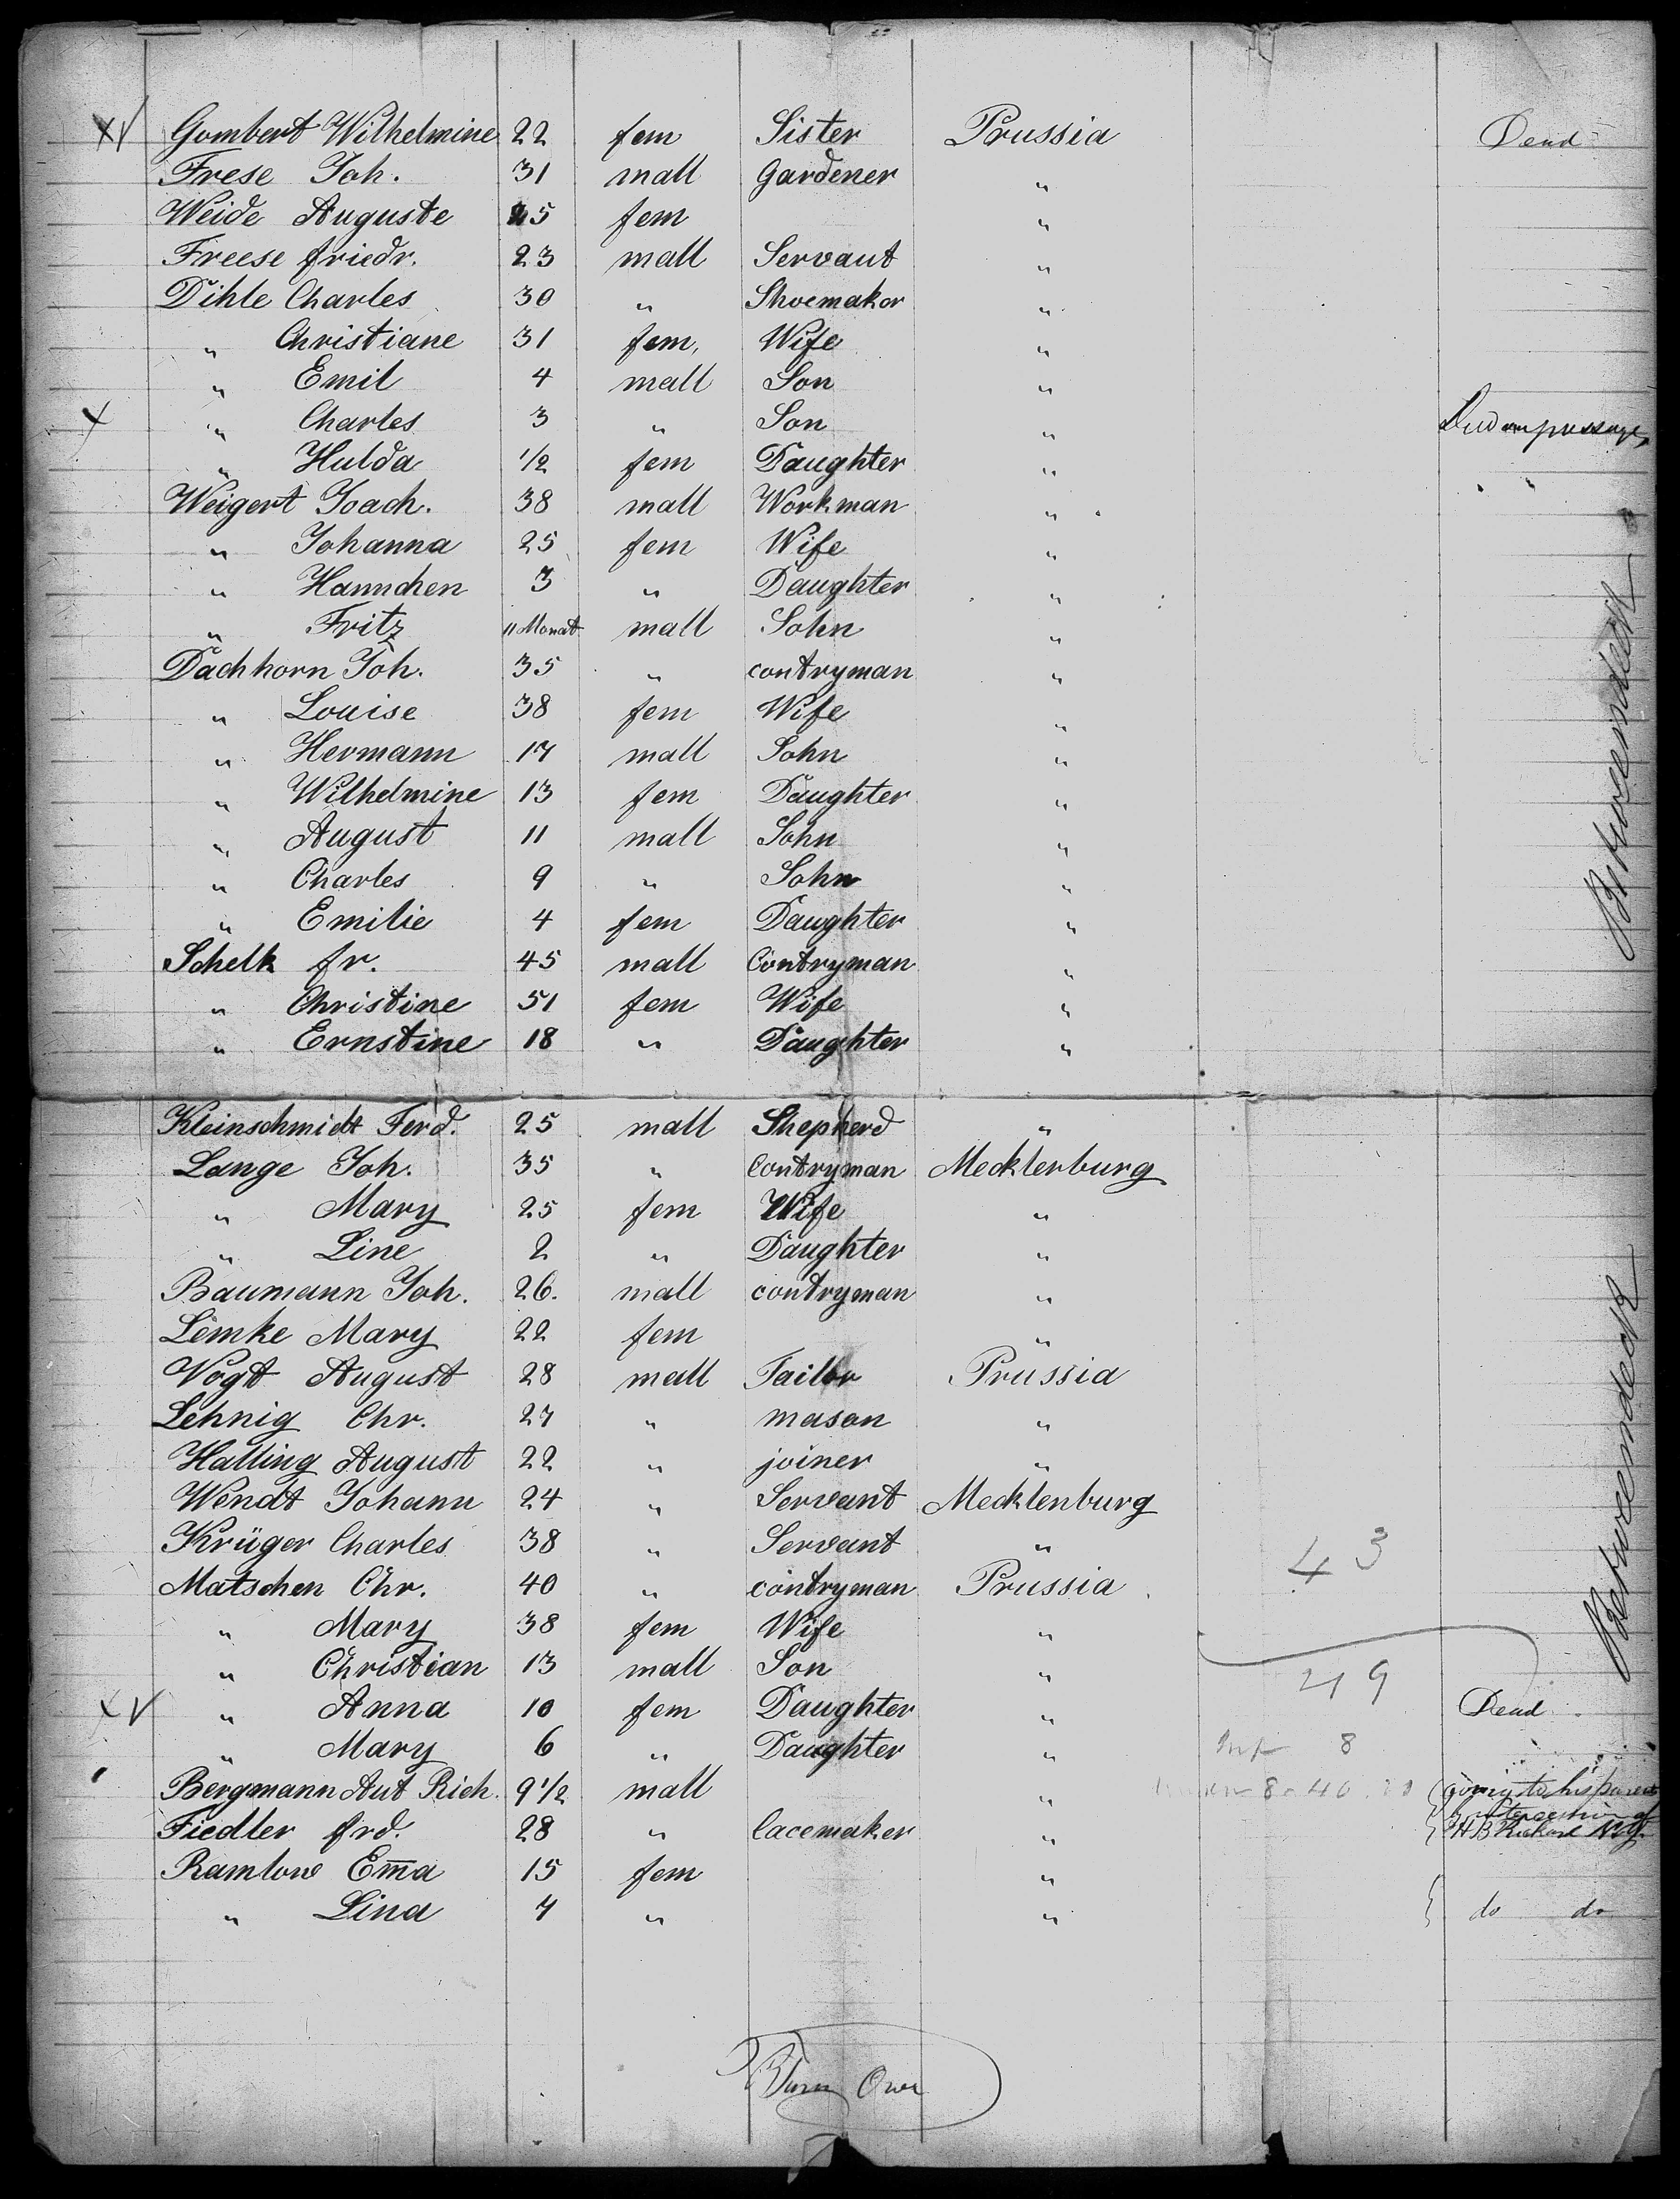 X√ Gombert Wilhelmine 22 fem Sister Prussia Dead
Frese Joh. 31 mall Gardener "
Weide Auguste 25 fem "
Freese friedr. 23 mall Servant "
Dihle Charles 30 " Shoemaker "
" Christiane 31 fem, Wife "
" Emil 4 mall Son "
X " Charles 3 " Son " Died on passage
" Hulda 1/2 fem Daughter "
Weigert Joach. 38 mall Workman "
" Johanna 25 fem Wife "
" Hannchen 3 " Daughter "
" Fritz 11 Monat mall Sohn "
Dachhorn Joh. 35 " contryman "
" Louise 38 fem Wife "
" Hermann 17 mall Sohn "
" Wilhelmine 13 fem Daughter "
" August 11 mall Sohn "
" Charles 9 " Sohn "
" Emilie 4 fem Daughter "
Schelk fr. 45 mall Contryman "
" Christine 51 fem Wife "
" Ernstine 18 " Daughter "
Betweendeck
Kleinschmidt Ferd. 25 mall Shepherd "
Lange Joh. 35 " Contryman Mecklenburg
" Mary 25 fem Wife "
" Line 2 " Daughter "
Baumann Joh. 26. mall contryman "
Lemke Mary 22 fem "
Vogt August 28 mall Tailor Prussia
Lehnig Chr. 27 " mason "
Halling August 22 " joiner "
Wendt Johann 24 " Servant Mecklenburg
Krüger Charles 38 " Servant "
43
Matschen Chr. 40 " contryman Prussia
" Mary 38 fem Wife "
" Christian 13 mall Son "
49
X√ " Anna 10 fem Daughter " Dead
" Mary 6 " Daughter " Inf 8
Bergmann Aut Rich. 9 1/2 mall " 8-40 going to his parents
Fiedler frd. 28 " lacemaker " HB Richard
Ramlow Em̅a 15 fem "
" Lina 7 " " do do
Betweendeck
Turn Over